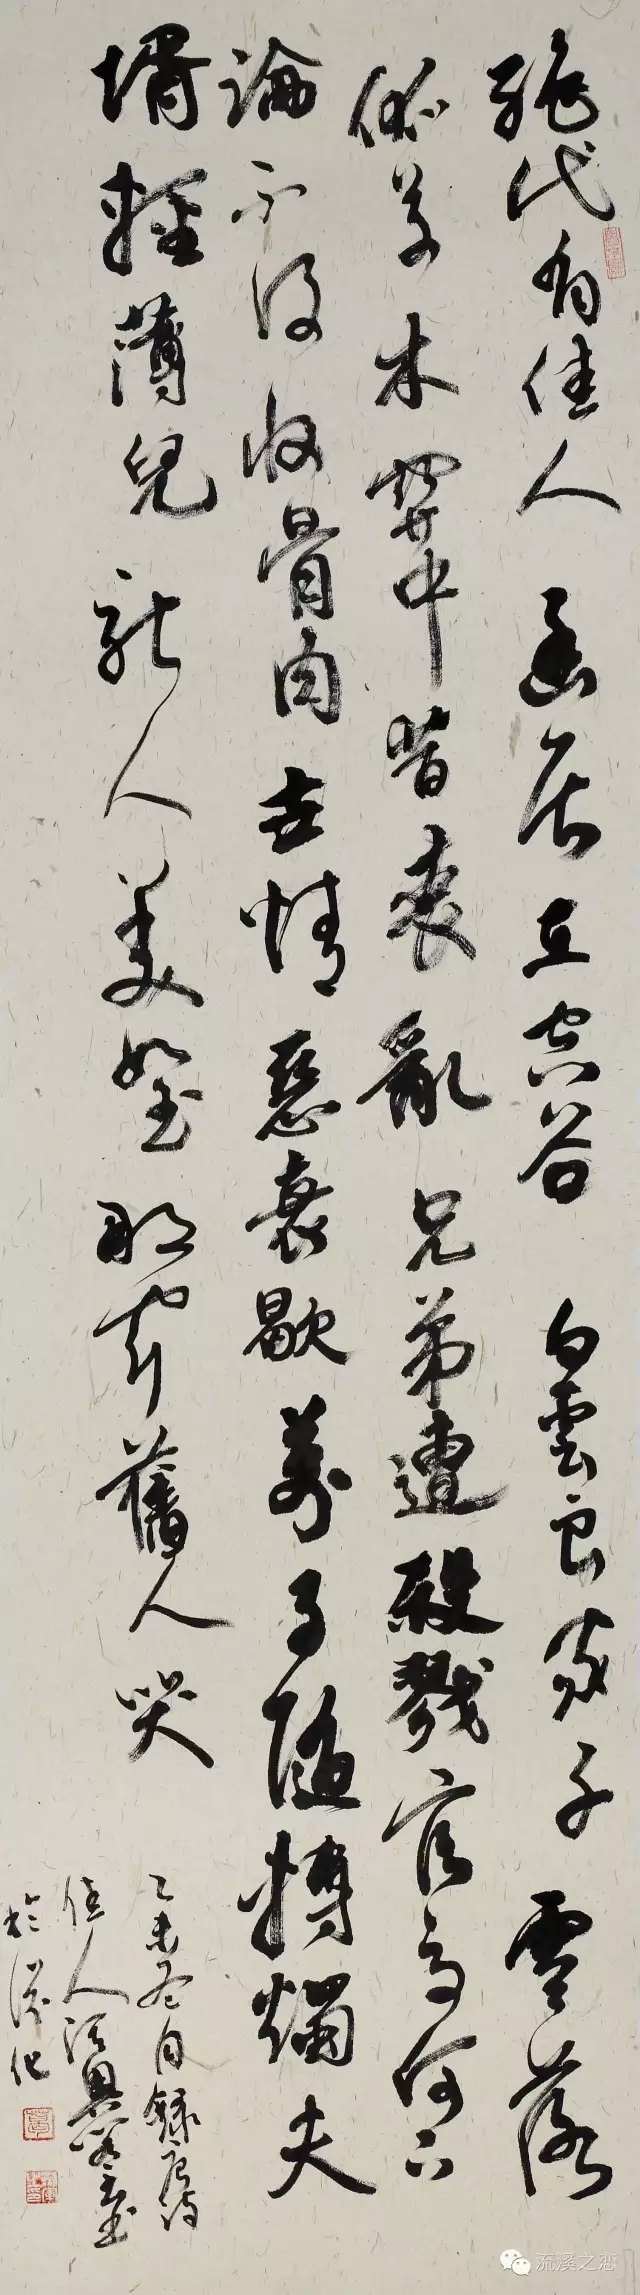 絕代有佳人幽居在空谷白雲良家子零落
依草木關中昔喪亂兄弟遭殺戮官高何足
論不得收骨肉世情惡衰歇萬事隨轉燭夫
壻輕薄兒新人美如玉那聞舊人哭
乙未冬月錄唐詩
佳人
於從化
流溪之恋